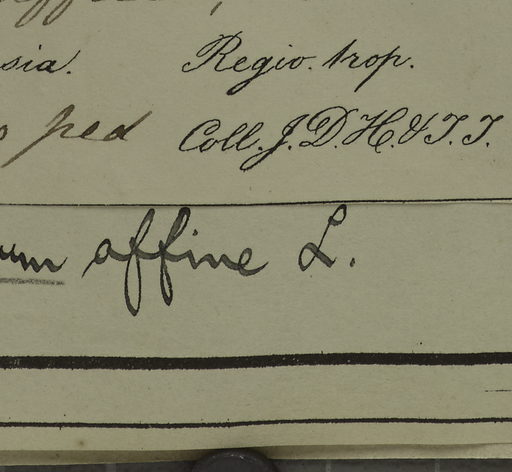 sia. Regio. trop.
ped Coll. J. D. H. & T. T.
um affine L.